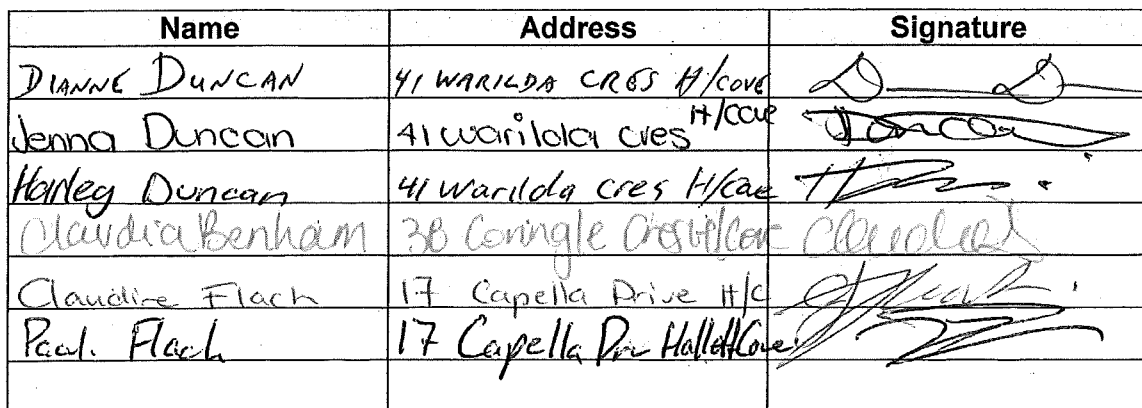 Name Address Signature
DIANNE DUNCAN 41 WARILDA CRES H/COVE
Jenna Duncan 41 warilda cres H/cove
Harley Duncan 41 warilda cres H/cove
Claudia Benham 38 Coringle Cres H/Cove Claudia
Claudine Flach 17 Capella Drive H/C
Paul. Flach 17 Capella Drv Hallett Cove